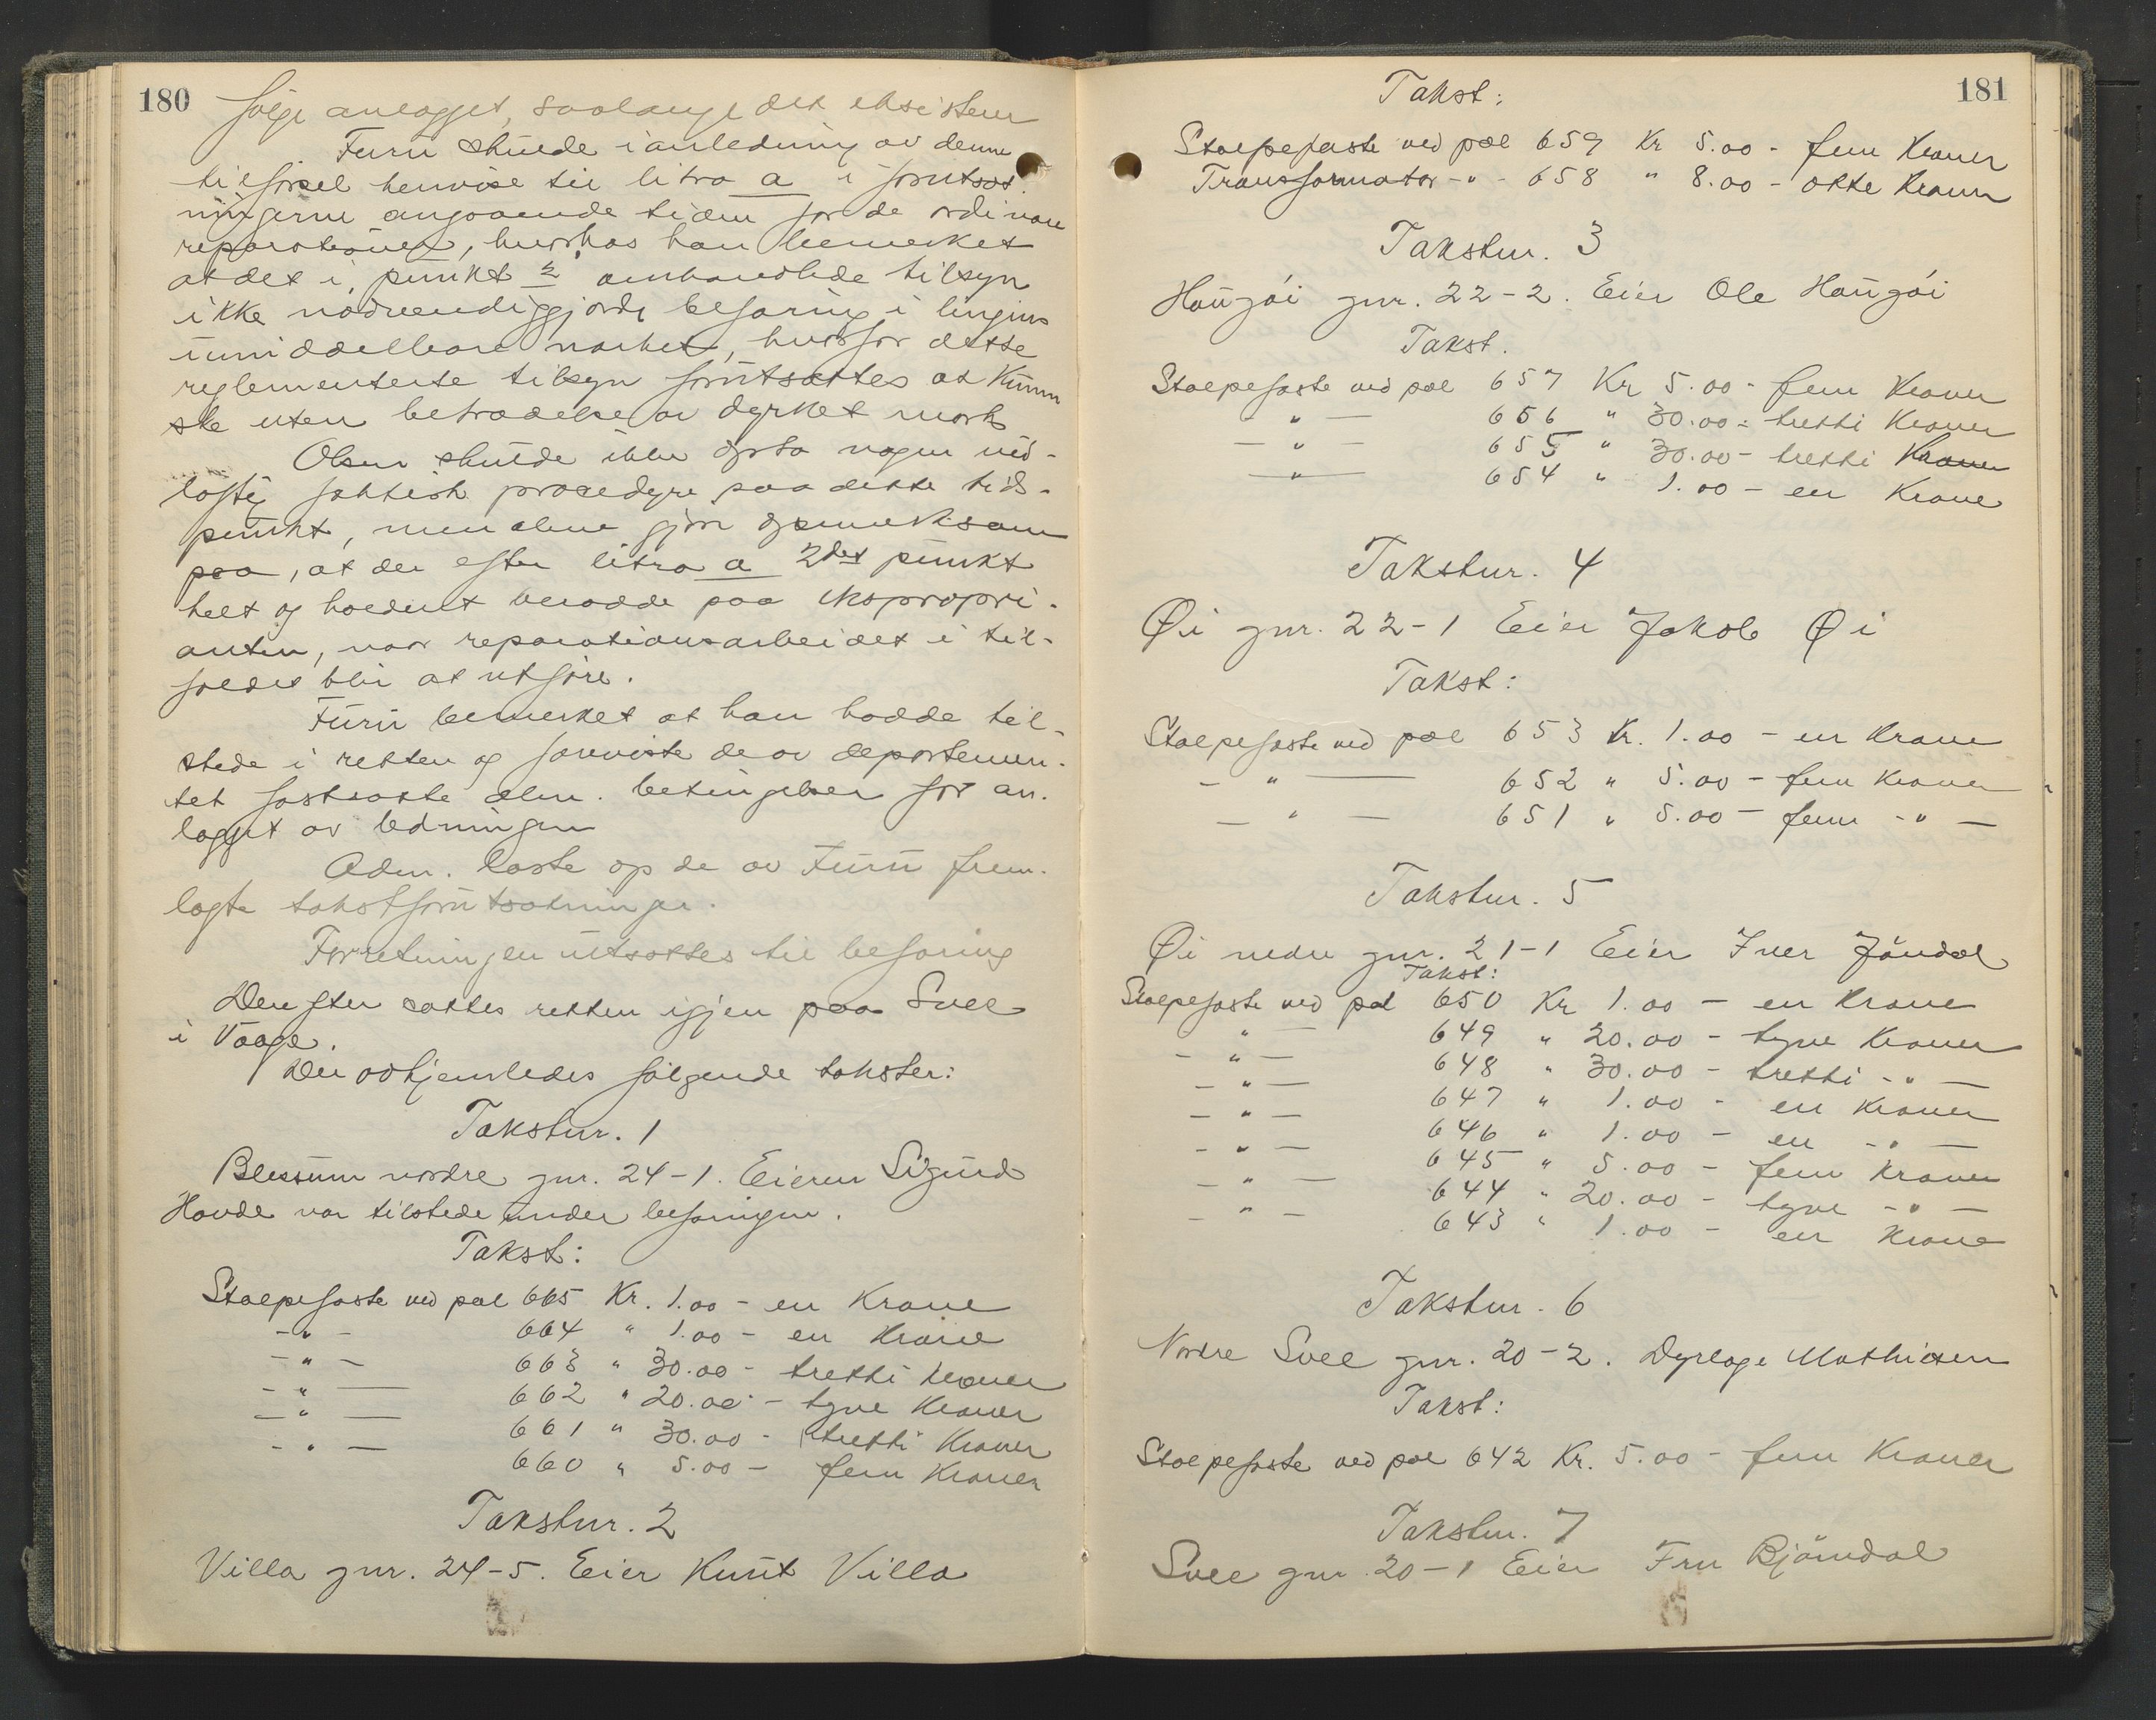 180
følge anlægget, saalænge det eksisterer
Furu skulde i anledning av denne
tilførsel henvise til litra a i forutsæt-
ningerne angaaende tiden for de ordinære
reparationer, hvorhos han bemerket
at det i punkt 2 omhandlede tilsyn
ikke nødvendiggjorde befaring i linjens
umiddelbare nærhet, hvorfor dette
reglementerte tilsyn forutsættes at kunne
ske uten betrædelse av dyrket mark
Olsen skulde ikke opta nogen vid-
løftig faktisk procedyre paa dette tids-
punkt, men alene gjøre opmerksom
paa, at der efter litra a 2det punkt
helt og holdent beror paa ekspropri-
anten, naar reparationsarbeidet i til-
fældet blir at utføre.
Furu bemerket at han hadde til-
stede i retten og foreviste de av departemen-
tet fastsatte alm. betingelser for an-
lægget av ledningen
Adm. læste op de av Furu frem-
lagte takstforutsætninger.
Forretningen utsattes til befaring
Derefter sattes retten igjen paa Svee
i Vaage.
Der avhjemledes følgende takster:
Takstnr. 1
Blessum nordre gnr. 24-1. Eieren Sigurd
Hovde var tilstede under befaringen.
Takst:
Stolpefæste ved pæl 665 Kr. 1.00 - en Krone
-"- 664 " 1.00 - en Krone
-"- 663 " 30.00 - tretti kroner
-"- 662 " 20.00 - tyve Kroner
-"- 661 " 30.00 - tretti Kroner
-"- 660 " 5.00 - fem Kroner
Takstnr. 2
Villa gnr. 24-5. Eier Knut Villa
181
Takst:
Stolpefæste ved pæl 659 Kr 5.00 - fem Kroner
Transformator -"- 658 " 8.00 - otte Kroner
Takstnr. 3
Haugøi gnr. 22-2. Eier Ole Haugøi
Takst.
Stolpefæste ved pæl 657 Kr 5.00 - fem Kroner
-"- 656 " 30.00 - tretti Kroner
-"- 655 " 30.00 - tretti Kroner
-"- 654 " 1.00 - en Krone
Takstnr. 4
Øi gnr. 22-1 Eier Jakob Øi
Takst:
Stolpefæste ved pæl 653 Kr. 1.00 - en Krone
-"- 652 " 5.00 - fem Kroner
-"- 651 " 5.00 - fem -"-
Takstnr. 5
Øi nedre gnr. 21-1 Eier Iver Jöndal
Takst:
Stolpefæste ved pæl 650 Kr 1.00 - en Krone
-"- 649 " 20.00 - tyve Kroner
-"- 648 " 30.00 - tretti -"-
-"- 647 " 1.00 - en Kroner
-"- 646 " 1.00 - en -"-
-"- 645 " 5.00 - fem Kroner
-"- 644 " 20.00 - tyve -"-
-"- 643 " 1.00 - en Krone
Takstnr. 6
Nordre Svee gnr. 20-2. Dyrlæge Mathisen
Takst:
Stolpefæste ved pæl 642 Kr. 5.00 - fem Kroner
Takstnr. 7
Svee gnr. 20-1 Eier Fru Bjöndal